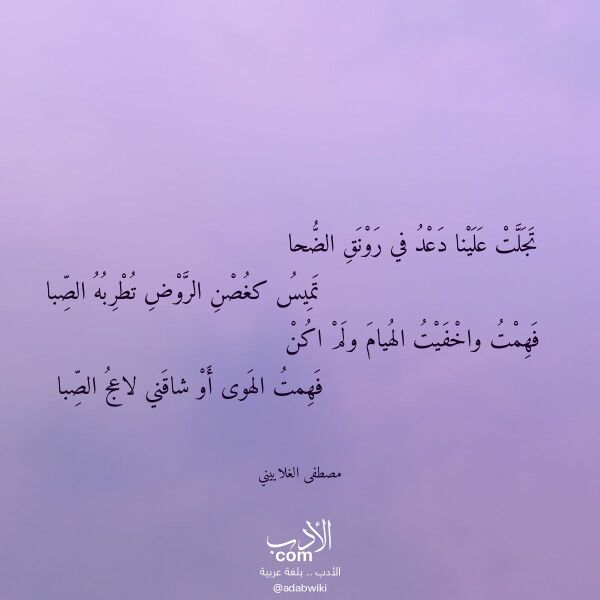 تَجَلَّتْ عَلَيْنا دَعْدُ في رَوْنَقِ الضُّحا
تَمِيسُ كغُصْنِ الرَّوْضِ تُطْرِبُهُ الصِّبا
فَهِمْتُ واخْفَيْتُ الهُيامَ ولَمْ اكُنْ
فَهِمتُ الهَوى أَوْ شاقَني لاعِجُ الصِّبا
مصطفى الغلاييني
الأدب
.com
الأدب .. بلغة عربية
@adabwiki